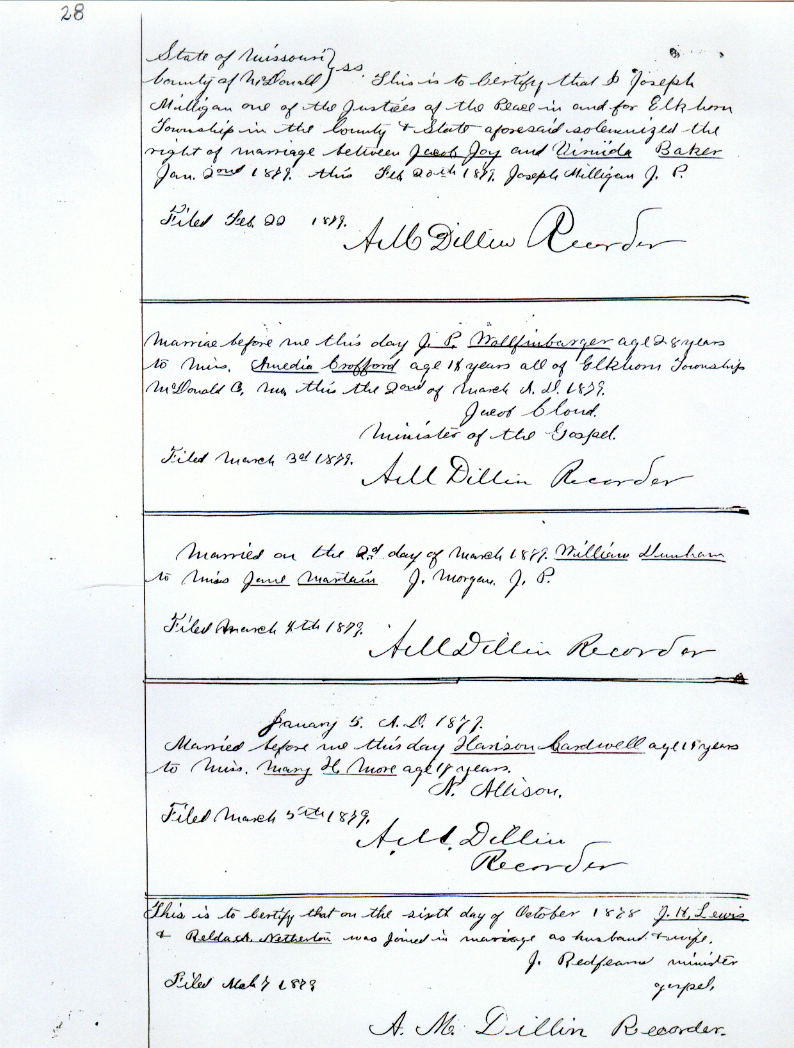 28
State of Missouri } ss.
County of McDonald) This is to Certify that I Joseph
Milligan one of the Justices of the Peace in and for Elkhorn
Township in the County & State aforesaid solemnized the
right of marriage between Jacob Joy and Vinida Baker
Jan. 2ond 1879. this Feb 20th 1879. Joseph Milligan J. P.
Filed Feb. 22 1879.
A M Dillin Recorder
Marriae before me this day J. P. Wolfinbarger age 28 years
to Miss. Amedia Crofford age 18 years all of Elkhorn Township
McDonald C, Mo, this the 2ond of March A. D. 1879.
Jacob Cloud.
Minister of the Gospel.
Filed March 3d 1879.
A M Dillin Recorder
Married on the 2d day of March 1879. William Dunham
to Miss Jane Martain J. Morgan. J. P.
Filed March 4th 1879.
A M Dillin Recorder
January 5. A. D. 1879.
Married before me this day Harison Cardwell age 18 years
to Miss. Mary H. More age 17 years.
N. Allison.
Filed March 5th 1879.
A. M. Dillin
Recorder
This is to Certify that on the sixth day of October 1878 J. H. Lewis
& Netherton was Joined in marriage as husband & wife.
J. Redfearn minister
gospel.
Filed Mch 7 1879
A. M. Dillin Recorder.